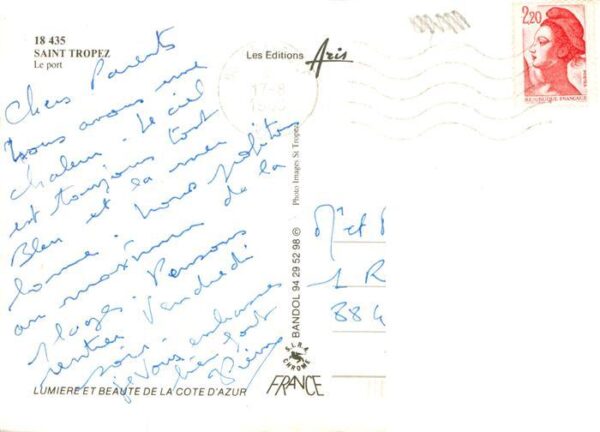 18 435
SAINT TROPEZ
Le port
Les Editions Aris
2,20
REPUBLIQUE FRANÇAISE
17-8
Chers Parents
Nous avons une
chaleur. Le ciel
est toujours tout
Bleu et la mer
bonne. Nous profitons
au maximum de la
plage. Pensons
rentrer Vendredi
soir.
je Vous embrasse
bien fort
Photo Images St Tropez
BANDOL 94 29 52 98 ©
S.E.R.A.
CHROME
FRANCE
Mr et
1 R
884
LUMIERE ET BEAUTE DE LA COTE D'AZUR